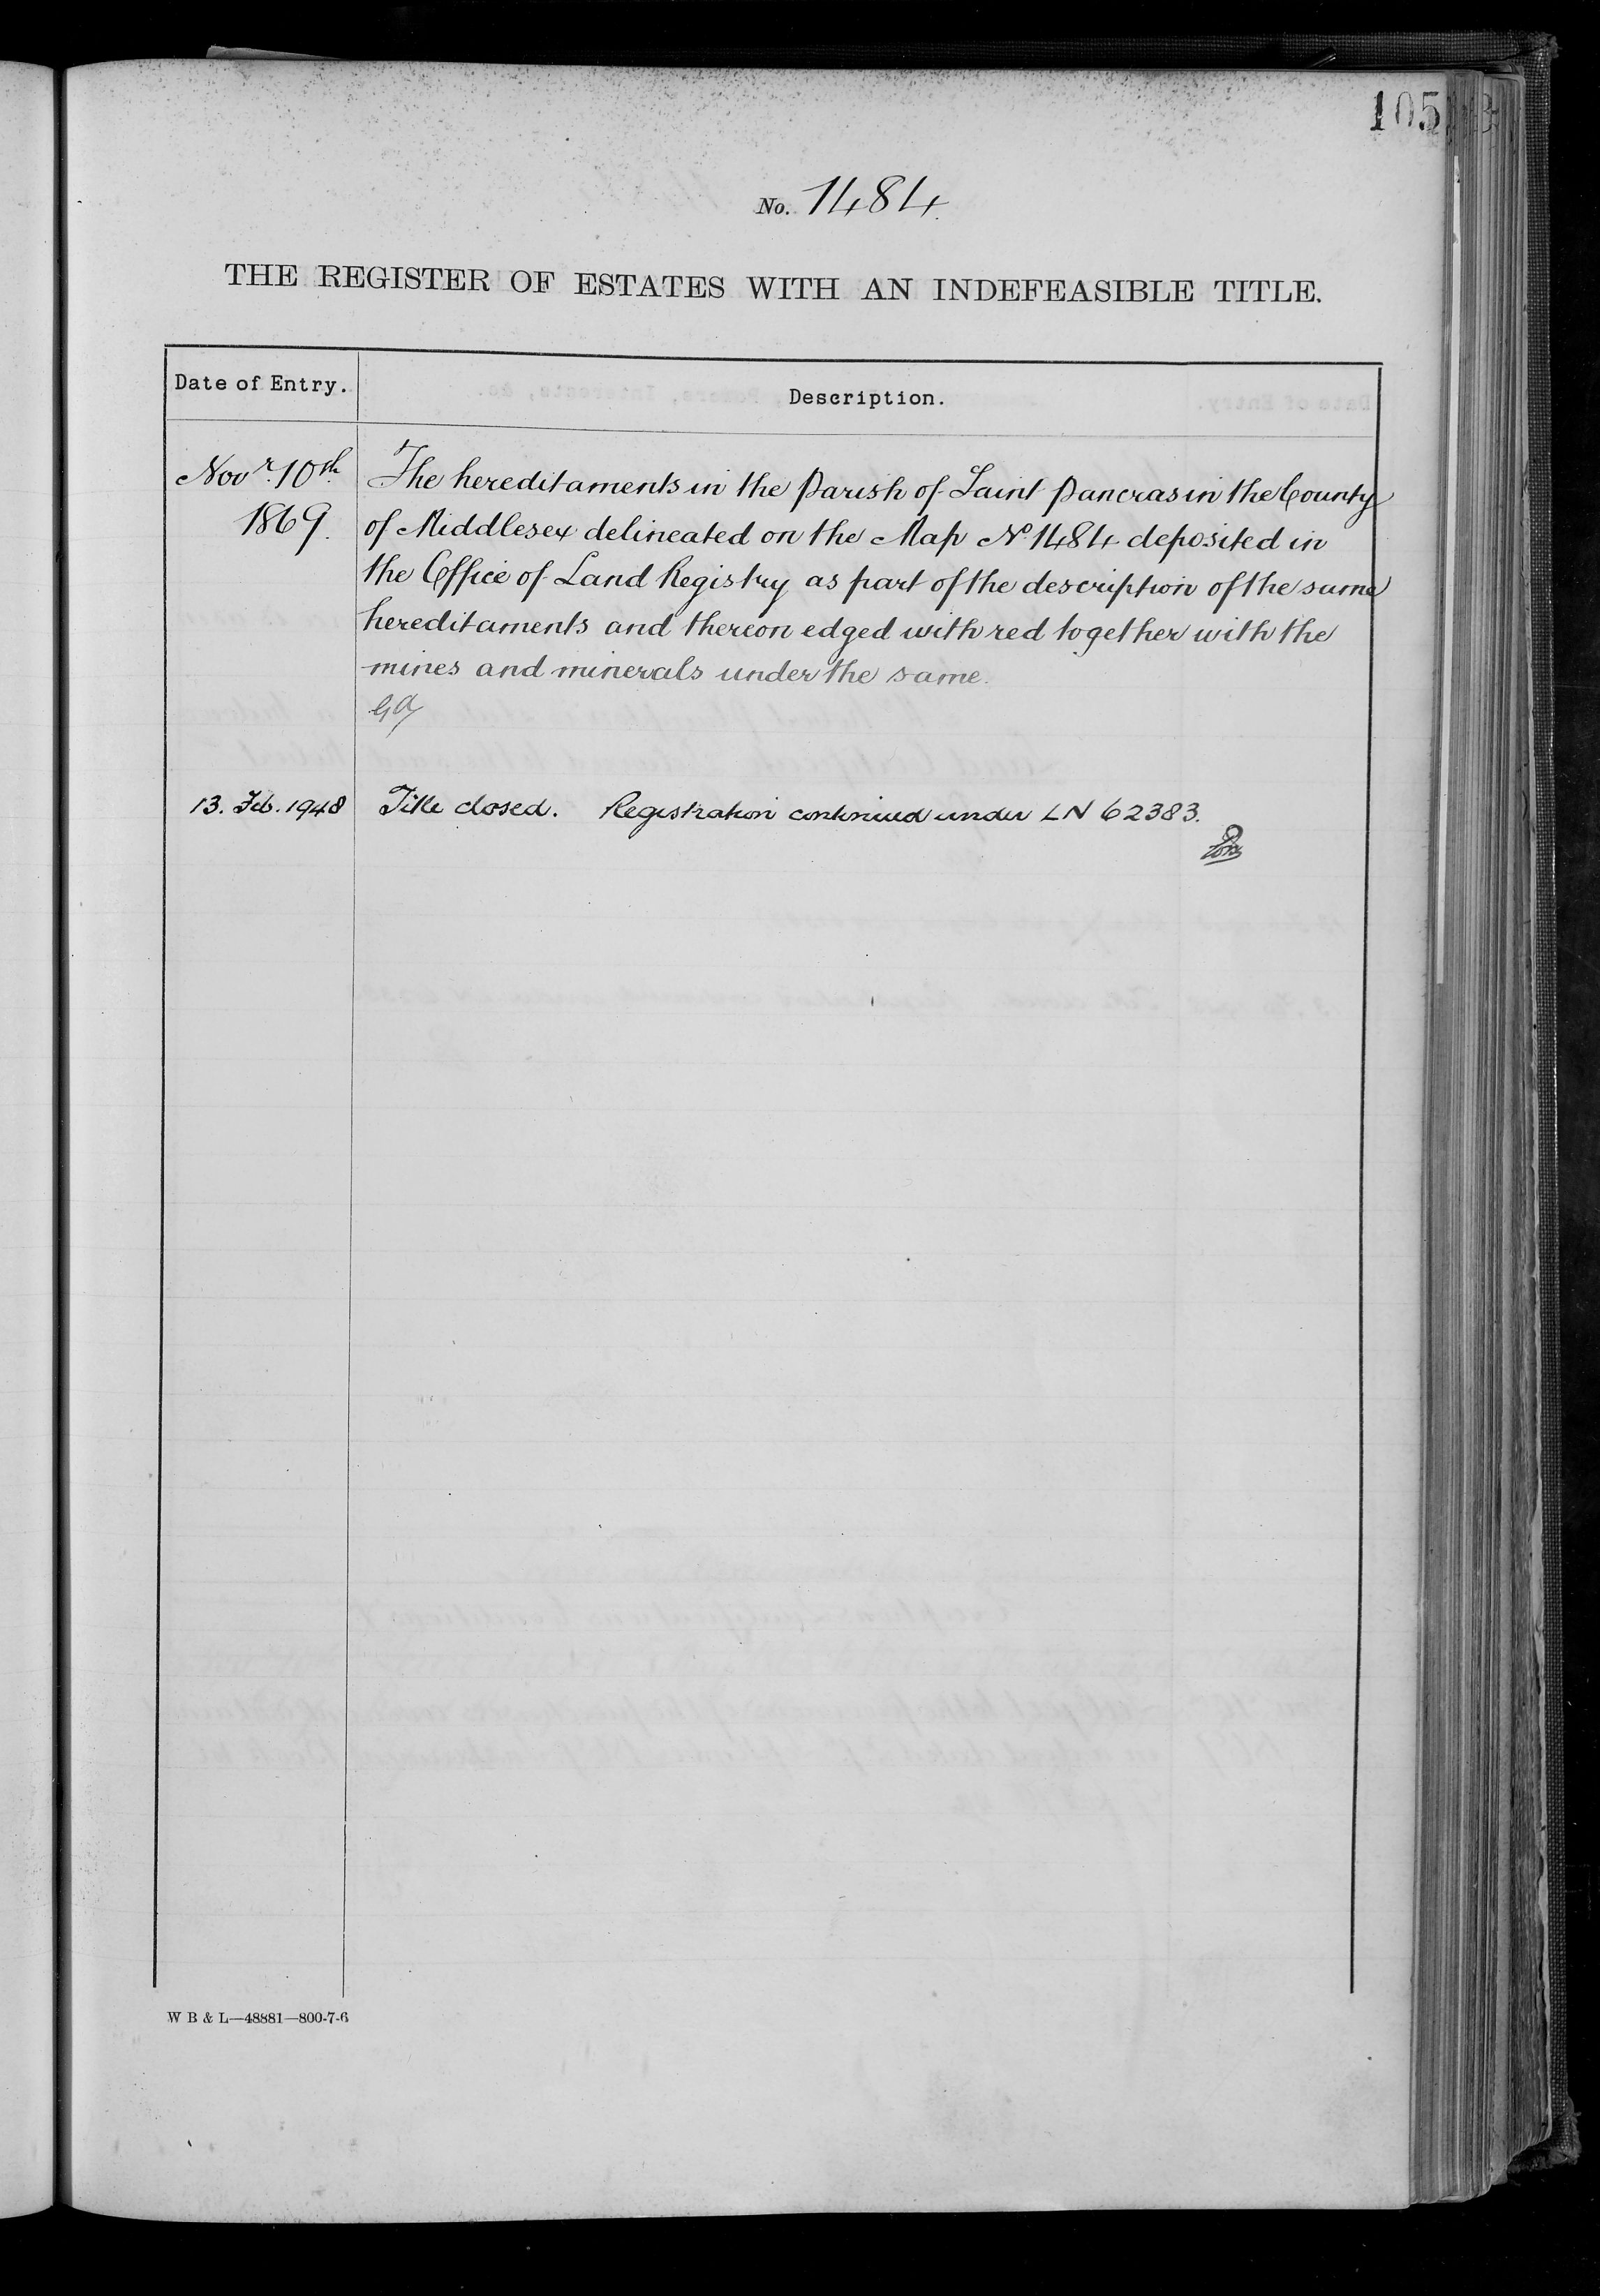 105
No. 1484.
THE REGISTER OF ESTATES WITH AN INDEFEASIBLE TITLE.
Date of Entry.
Description.
Novr. 10th
1869.
The hereditaments in the Parish of Saint Pancras in the County
of Middlesex delineated on the Map No 1484 deposited in
the Office of Land Registry as part of the description of the same
hereditaments and thereon edged with red together with the
mines and minerals under the same.
13. Feb. 1948
Title closed. Registration continued under LN 62383.
W B & L—48881—800-7-6